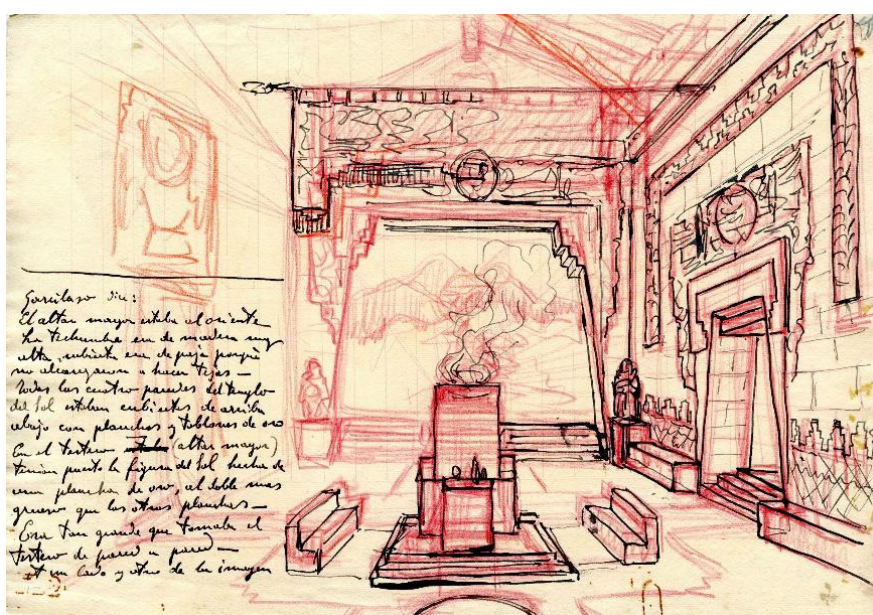 Garcilaso dice:
El altar mayor estaba al oriente
La techumbre era de madera muy
alta, cubierta era de paja porque
no alcanzaron a hacer tejas —
Todas las cuatro paredes del templo
del Sol estaban cubiertas de arriba
abajo con planchas y tablones de oro
En el testero (altar mayor)
tenian puesta la figura del Sol hecha de
una plancha de oro, al doble mas
grueso que las otras planchas —
Era tan grande que tomaba el
testero de pared a pared —
A un lado y otro de la imagen